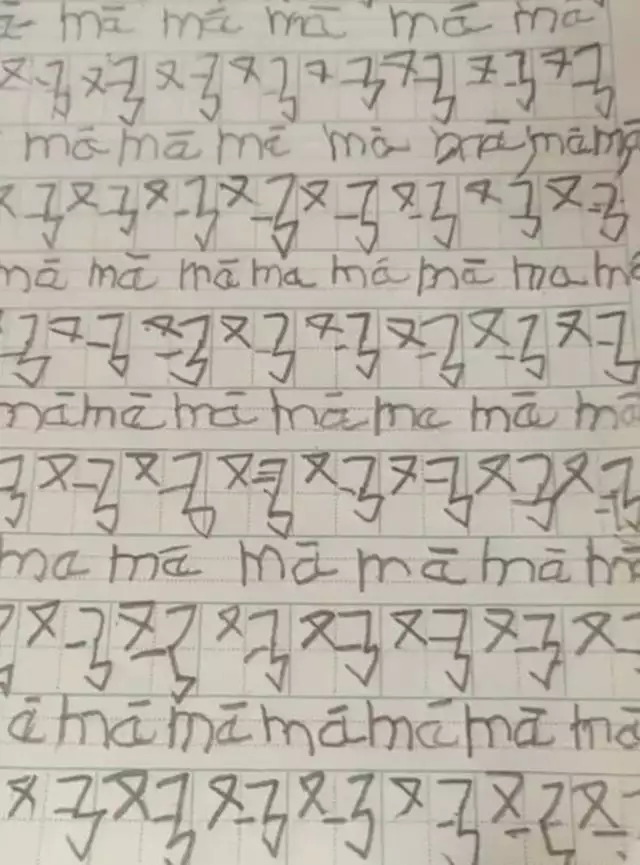 mā mā mā mā mā
妈 妈 妈 妈 妈 妈 妈 妈
mā mā mā mā mā mā
妈 妈 妈 妈 妈 妈 妈 妈
mā mā mā ma mā mā ma mā
妈 妈 妈 妈 妈 妈 妈
mā mā mā mā ma mā mā
妈 妈 妈 妈 妈 妈 妈
ma mā mā mā mā mā
妈 妈 妈 妈 妈 妈
ā mā mā mā mā mā mā
妈 妈 妈 妈 妈 妈